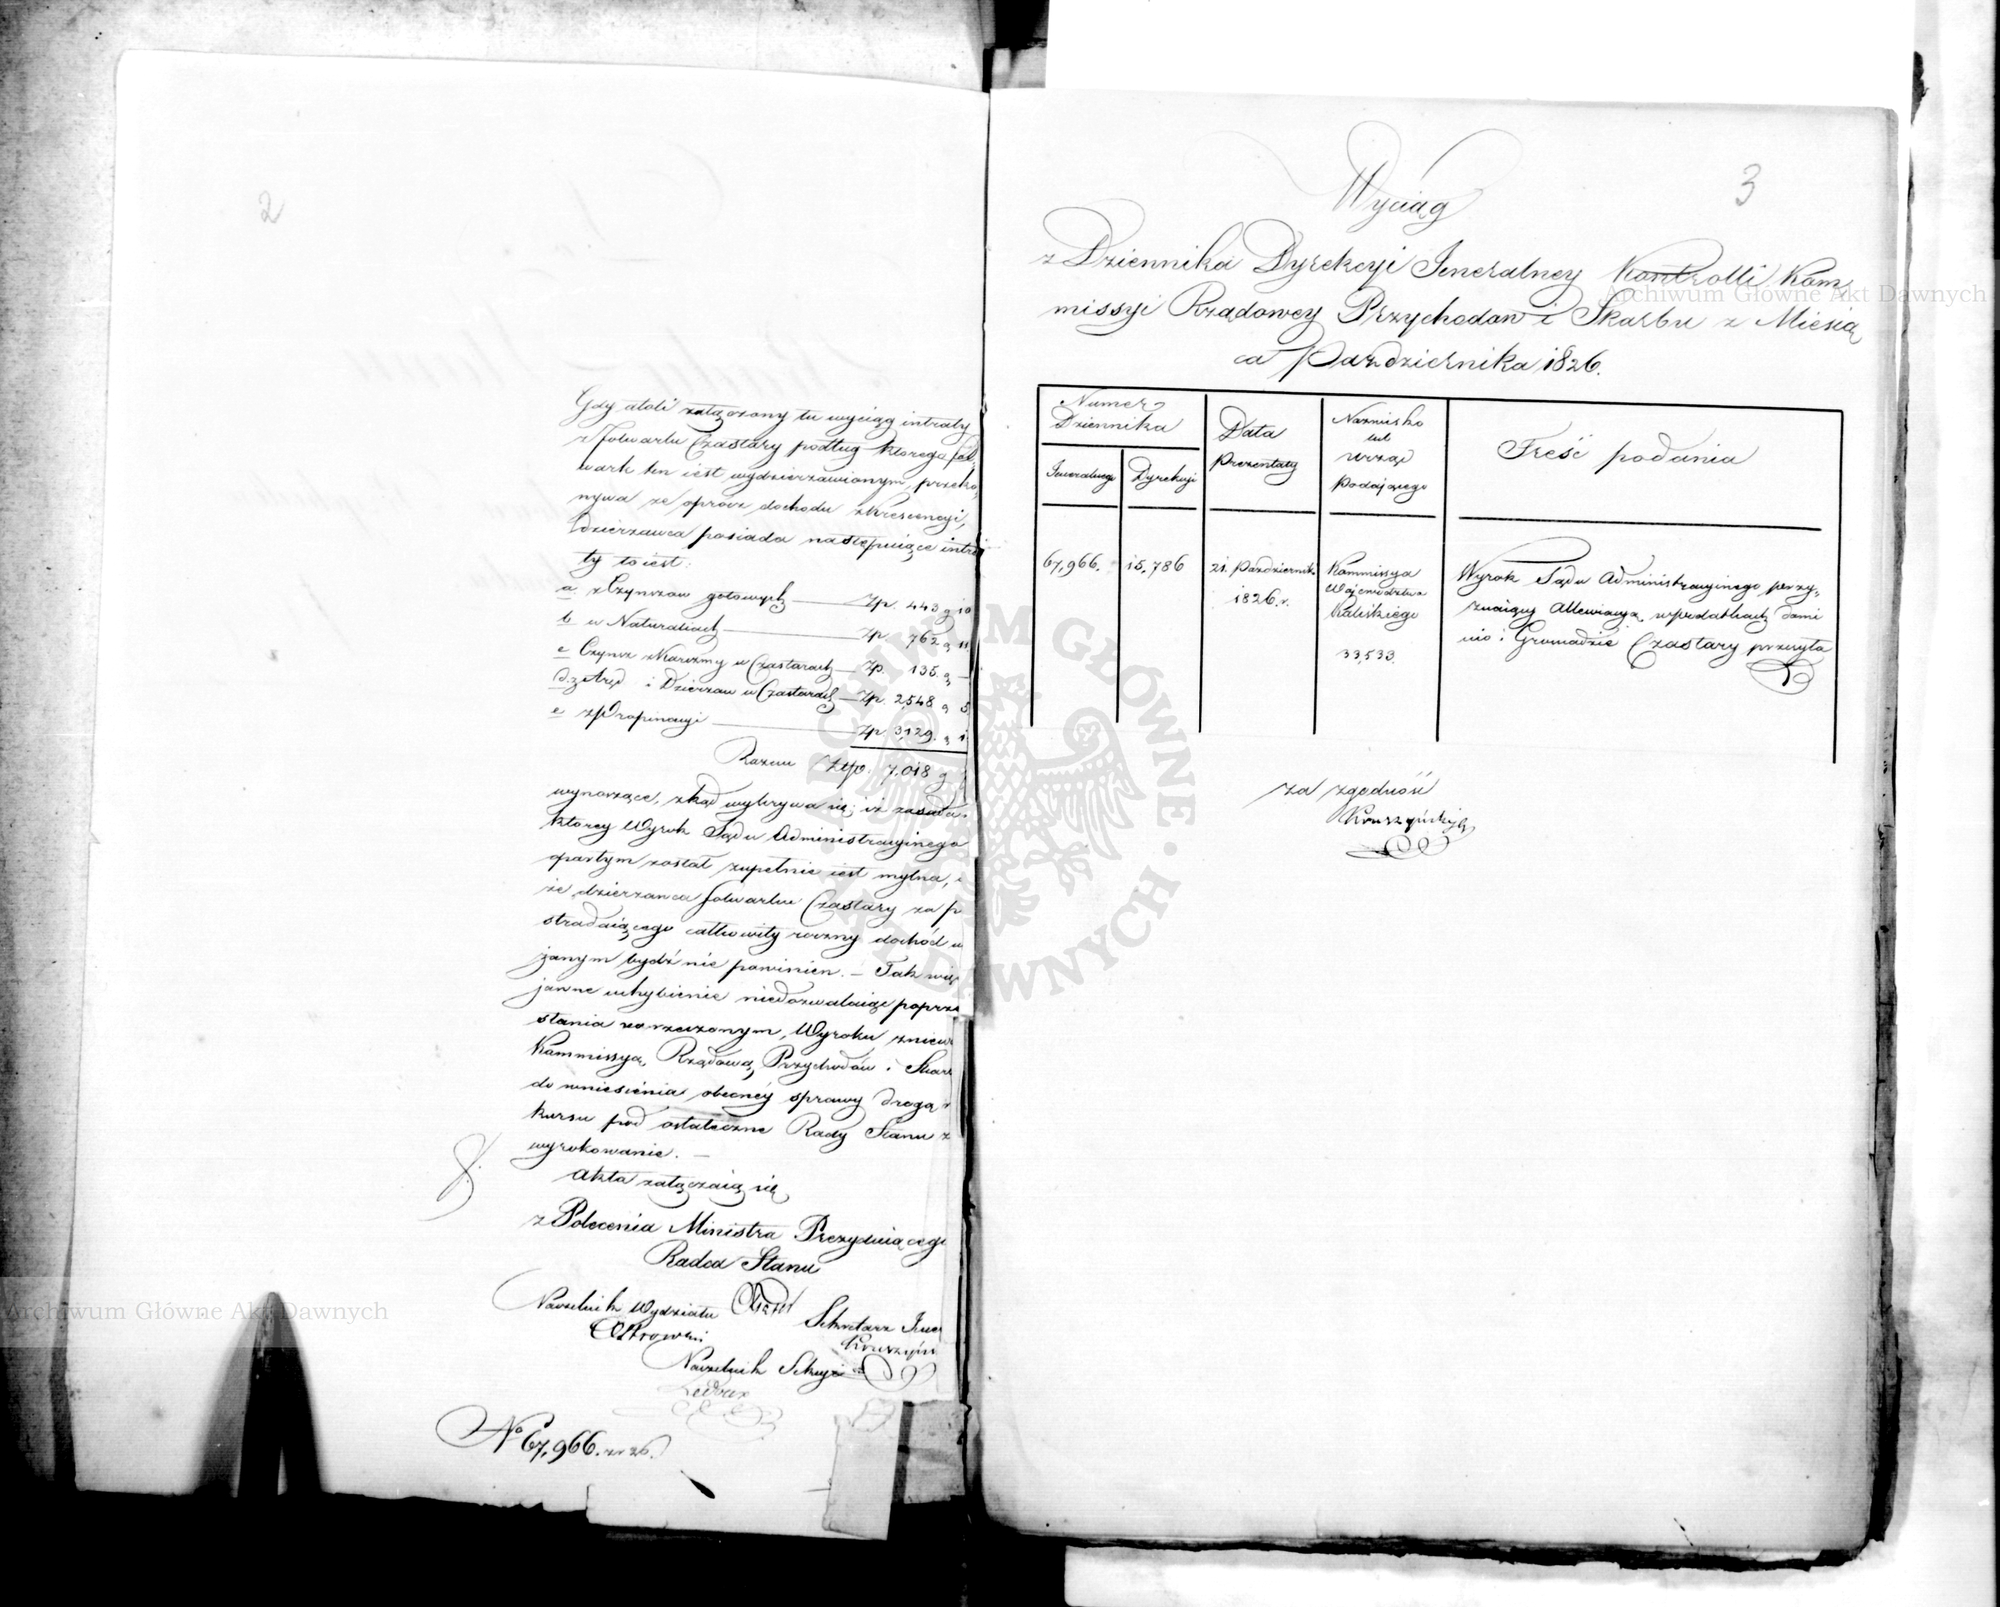 2
Gdy atoli załączony tu wyciąg intraty
z folwarku Czastary podług którego fol
wark ten iest wydzierzawionym, przeko
nywa że oprócz dochodu z krescencyi,
Dzierzawca posiada następuiące intra
ty to iest:
a z Czynszów gotowych Zp. 443 g 10
b w Naturaliach Zp. 762 g 11
c Czynsz z Karczmy w Czastarach Zp. 135. g –
d. z i Dzierzaw w Czastarach Zp. 2,548 g 5
e z Propinacyi Zp. 3,129. g 1
Razem Złp. 7,018 g
wynoszące, zkąd wykrywa się, iż zasada
ktorey Wyrok Sądu Administracyinego
opartym został zupełnie iest mylna,
że dzierzawca folwarku Czastary za p
stradaiącego całkowity roczny dochód u
zanym bydź nie powinien. – Tak więc
jawne uchybienie niedozwalaiąc poprze
stania na rzeczonym Wyroku, zniew
Kommissyą Rządową Przychodów i Skar
do wniesienia obecnéy sprawy drogą
kursu pod ostateczne Rady Stanu z
wyrokowanie. –
Akta załączaią się
z Polecenia Ministra Prezyduiącego
Radca Stanu
Naczelnik Wydziału
Sekretarz Jene
Ostrowski
Kruszyńs
Naczelnik Sekcyi
No 67,966. z r 26.
3
Wyciąg
z Dziennika Dyrekcyi Jeneralney Kontrolli Kom
missyi Rządowey Przychodow i Skarbu z Miesią
ca Pazdziernika 1826.
Numer
Dziennika
Jeneralnego
Dyrekcyi
Data
Prezentaty
Nazwisko
lub
Urząd
Podaiącego
Treść podania
67,966.
15,786
21. Pazdziernik
1826. r.
Kommissya
Województwa
Kaliskiego
33,533.
Wyrok Sądu Administracyinego przy
znaiący Allewiacyą w podatkach Domi
nio i Gromadzie Czastary przesyła
za zgodność
Kruszyński
Archiwum Główne Akt Dawnych
Archiwum Główne Akt Dawnych
ARCHIWUM GŁÓWNE AKT DAWNYCH